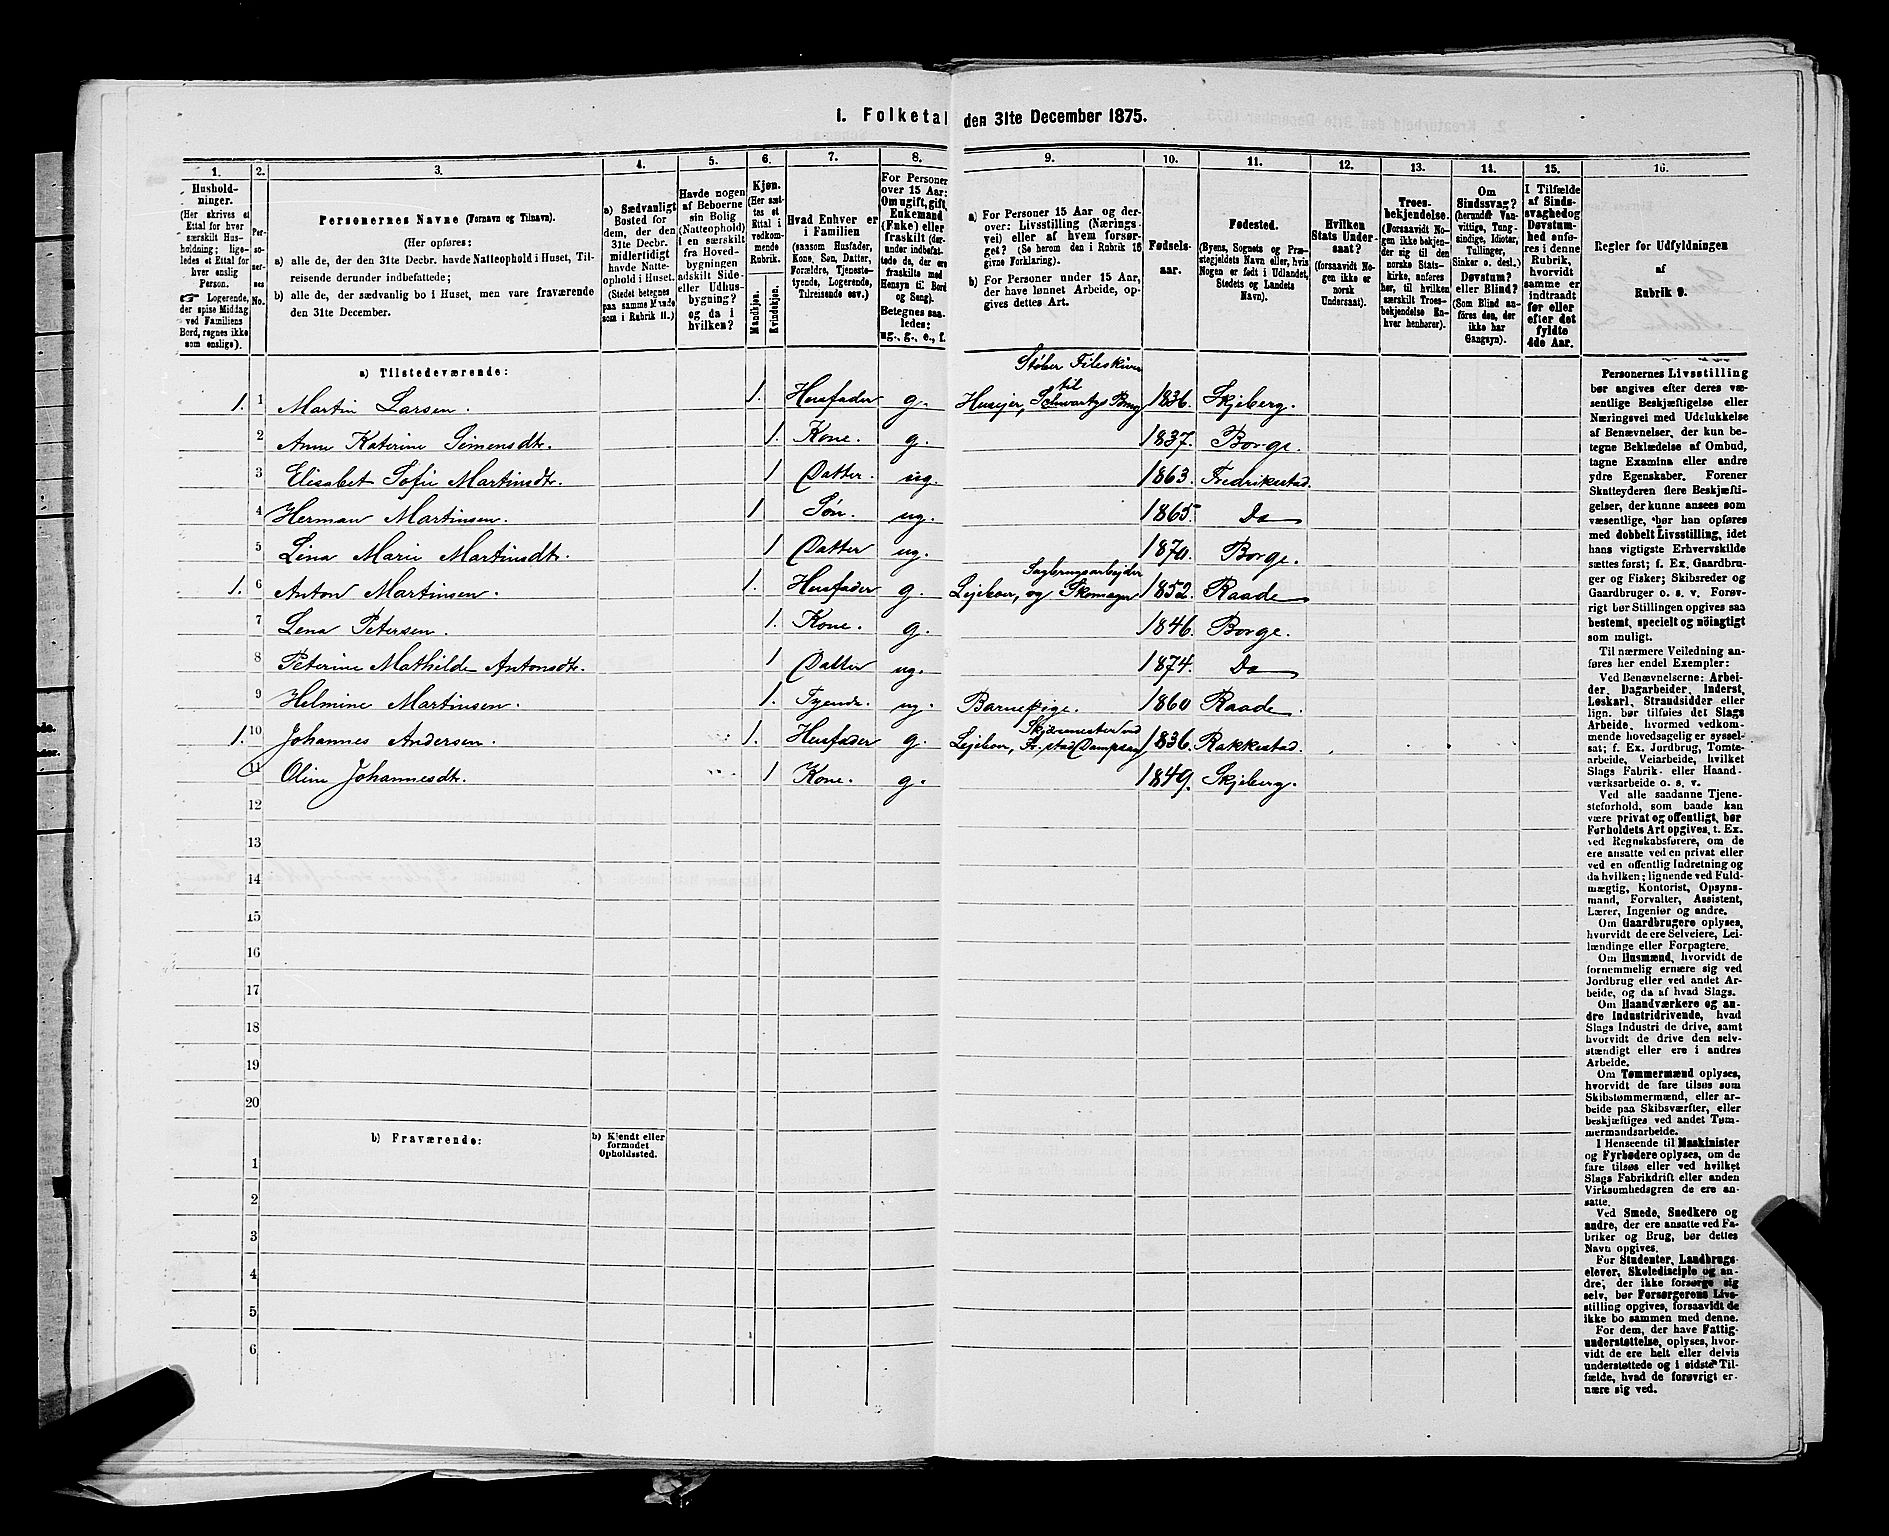 1. Folketal den 31te December 1875.
1. 2. 3. 4. 5. 6. 7. 8. 9. 10. 11. 12. 13. 14. 15. 16.
Hushold-
ninger.
(Her skrives et
Ettal for hver
særskilt Hus-
holdning; lige-
ledes et Ettal for
hver enslig
Person.
Logerende,
der spise Middag
ved Familiens
Bord, regnes ikke
som enslige).
Per-
so-
ner-
nes
No.
Personernes Navne (Fornavn og Tilnavn).
(Her opføres:
a) alle de, der den 31te Decbr. havde Natteophold i Huset, Til-
reisende derunder indbefattede;
b) alle de, der sædvanlig bo i Huset, men vare fraværende
den 31te December.
a) Sædvanligt
Bosted for
dem, der den
31te Decbr.
midlertidigt
havde Natte-
ophold i Huset.
(Stedet betegnes
paa samme Maade
som i Rubrik 11.)
Havde nogen
af Beboerne
sin Bolig
(Natteophold)
i en særskilt
fra Hoved-
bygningen
adskilt Side-
eller Udhus-
bygning?
og da i
hvilken?
Kjøn.
(Her sæt-
tes et
Ettal i
vedkom-
mende
Rubrik.
Mandkjøn.
Kvindekjøn.
Hvad Enhver er
i Familien
(saasom Husfader,
Kone, Søn, Datter,
Forældre, Tjeneste-
tyende, Logerende,
Tilreisende osv.)
For Personer
over 15 Aar:
Om ugift, gift,
Enkemand
(Enke) eller
fraskilt (der-
under indbefat-
tede de, der ere
fraskilte med
Hensyn til Bord
og Seng).
Betegnes saa-
ledes:
ug., g., e., f.
a) For Personer 15 Aar og der-
over: Livsstilling (Nærings-
vei) eller af hvem forsør-
get? (Se herom den i Rubrik 16
givne Forklaring).
b) For Personer under 15 Aar,
der have lønnet Arbeide, op-
gives dettes Art.
Fødsels-
aar.
Fødested.
(Byens, Sognets og Præ-
stegjeldets Navn eller, hvis
Nogen er født i Udlandet,
Stedets og Landets
Navn).
Hvilken
Stats Under-
saat?
(forsaavidt No-
gen ikke er
norsk
Undersaat).
Troes-
bekjendelse.
(Forsaavidt No-
gen ikke bekjen-
der sig til den
norske Stats-
kirke, anføres
her, til hvilken
særskilt Troes-
bekjendelse En-
hver henhører).
Om
Sindssvag?
(herunder Van-
vittige, Tung-
sindige, Idioter,
Tullinger,
Sinker o. desl.)
Døvstum?
eller Blind?
(Som Blind an-
føres den, der
ikke har
Gangsyn).
I Tilfælde
af Sinds-
svaghed og
Døvstum-
hed anfø-
res i denne
Rubrik,
hvorvidt
samme er
indtraadt
før eller
efter det
fyldte
4de Aar.
Regler for Udfyldningen
af
Rubrik 9.
a) Tilstedeværende:
1. 1 Martin Larsen. 1. Husfader g. Husejer, Støber Fileskiver til Schwartzs Brug 1836. Skjeberg.
2 Anne Katerine Simensdtr. 1. Kone. g. 1837. Borge.
3 Elisabet Sofie Martinsdtr. 1 Datter. ug. 1863. Fredrikstad.
4 Herman Martinsen. 1 Søn. ug. 1865. Do
5 Lina Marie Martinsdtr. 1 Datter ug. 1870. Borge.
1. 6 Anton Martinsen. 1. Husfader g. Lejeboer, Sagbrugsarbejder og Skomager 1852. Raade
7 Lena Petersen. 1. Kone. g. 1846. Borge.
8 Peterine Mathilde Antonsdtr. 1 Datter ug. 1874. Do
9 Helmine Martinsen. 1. Tyende. ug. Barnepige. 1860 Raade.
1. 10 Johannes Andersen. 1. Husfader g. Lejeboer, Skjæremester ved Fr.stad Dampsag 1836. Rakkestad.
11 Oline Johannesdtr. 1 Kone. g. 1849. Skjeberg.
12
13
14
15
16
17
18
19
20
b) Fraværende:
b) Kjendt eller
formodet
Opholdssted.
1
2
3
4
5
6
Personernes Livsstilling
bør angives efter deres væ-
sentlige Beskjæftigelse eller
Næringsvei med Udelukkelse
af Benævnelser, der kun be-
tegne Beklædelse af Ombud,
tagne Examina eller andre
ydre Egenskaber. Forener
Skatteyderen flere Beskjæfti-
gelser, der kunne ansees som
væsentlige, bør han opføres
med dobbelt Livsstilling, idet
hans vigtigste Erhvervskilde
sættes først; f. Ex. Gaardbru-
ger og Fisker; Skibsreder og
Gaardbruger o. s. v. Forøv-
rigt bør Stillingen opgives saa
bestemt, specielt og nøiagtigt
som muligt.
Til nærmere Veiledning an-
føres her endel Exempler:
Ved Benævnelserne: Arbei-
der, Dagarbeider, Inderst,
Løskarl, Strandsidder eller
lign. bør tilføies det Slags
Arbeide, hvormed vedkom-
mende hovedsagelig er syssel-
sat; f. Ex. Jordbrug, Tomte-
arbeide, Veiarbeide, hvilket
Slags Fabrik- eller Haand-
værksarbeide o. s. v.
Ved alle saadanne Tjene-
steforhold, som baade kan
være privat og offentligt, bør
Forholdets Art opgives, t. Ex.
ved Regnskabsførere, om de
ere ansatte ved en privat eller
ved en offentlig Indretning og
da hvilken; lignende ved Fuld-
mægtig, Kontorist, Opsyns-
mand, Forvalter, Assistent,
Lærer, Ingeniør og andre.
Om Gaardbrugere oplyses,
hvorvidt de ere Selveiere, Lei-
lændinge eller Forpagtere.
Om Husmænd, hvorvidt de
fornemmelig ernære sig ved
Jordbrug eller ved andet Ar-
beide, og da af hvad Slags.
Om Haandværkere og an-
dre Industridrivende, hvad
Slags Industri de drive, samt
hvorvidt de drive den selv-
stændigt eller ere i andres
Arbeide.
Om Tømmermænd oplyses,
hvorvidt de fare tilsøs som
Skibstømmermænd, eller ar-
beide paa Skibsværfter, eller
beskjæftiges ved andet Tøm-
mermandsarbeide.
I Henseende til Maskinister
og Fyrbødere oplyses, om de
fare tilsøs eller ved hvilket
Slags Fabrikdrift eller anden
Virksomhedsgren de ere an-
satte.
Ved Smede, Snedkere og
andre, der ere ansatte ved Fa-
briker og Brug, bør dettes
Navn opgives.
For Studenter, Landbrugs-
elever, Skoledisciple og an-
dre, der ikke forsørge sig
selv, bør Forsørgerens Livs-
stilling opgives, forsaavidt de
ikke bo sammen med denne.
For dem, der have Fattig-
understøttelse, oplyses, hvor-
vidt de ere helt eller delvis
understøttede og i sidste Til-
fælde, hvad de forøvrigt er-
nære sig ved.